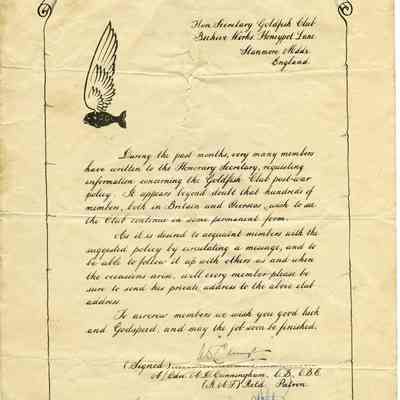 Hon. Secretary Goldfish Club
Beehive Works. Honeypot Lane.
Stanmore. Mddx.
England.
During the past months, very many members
have written to the Honorary Secretary, requesting
information concerning the Goldfish Club post-war
policy. It appears beyond doubt that hundreds of
members, both in Britain and Overseas, wish to see
the Club continue on some permanent form.
As it is desired to acquaint members with the
suggested policy by circulating a message, and to
be able to follow it up with others as and when
the occasions arise, will every member please be
sure to send his private address to the above club
address.
To aircrew members we wish you good luck
and Godspeed, and may the job soon be finished.
(Signed)
A/Cdre. A.D. Cunningham, C.B., C.B.E.
(R.A.F) Retd. Patron.